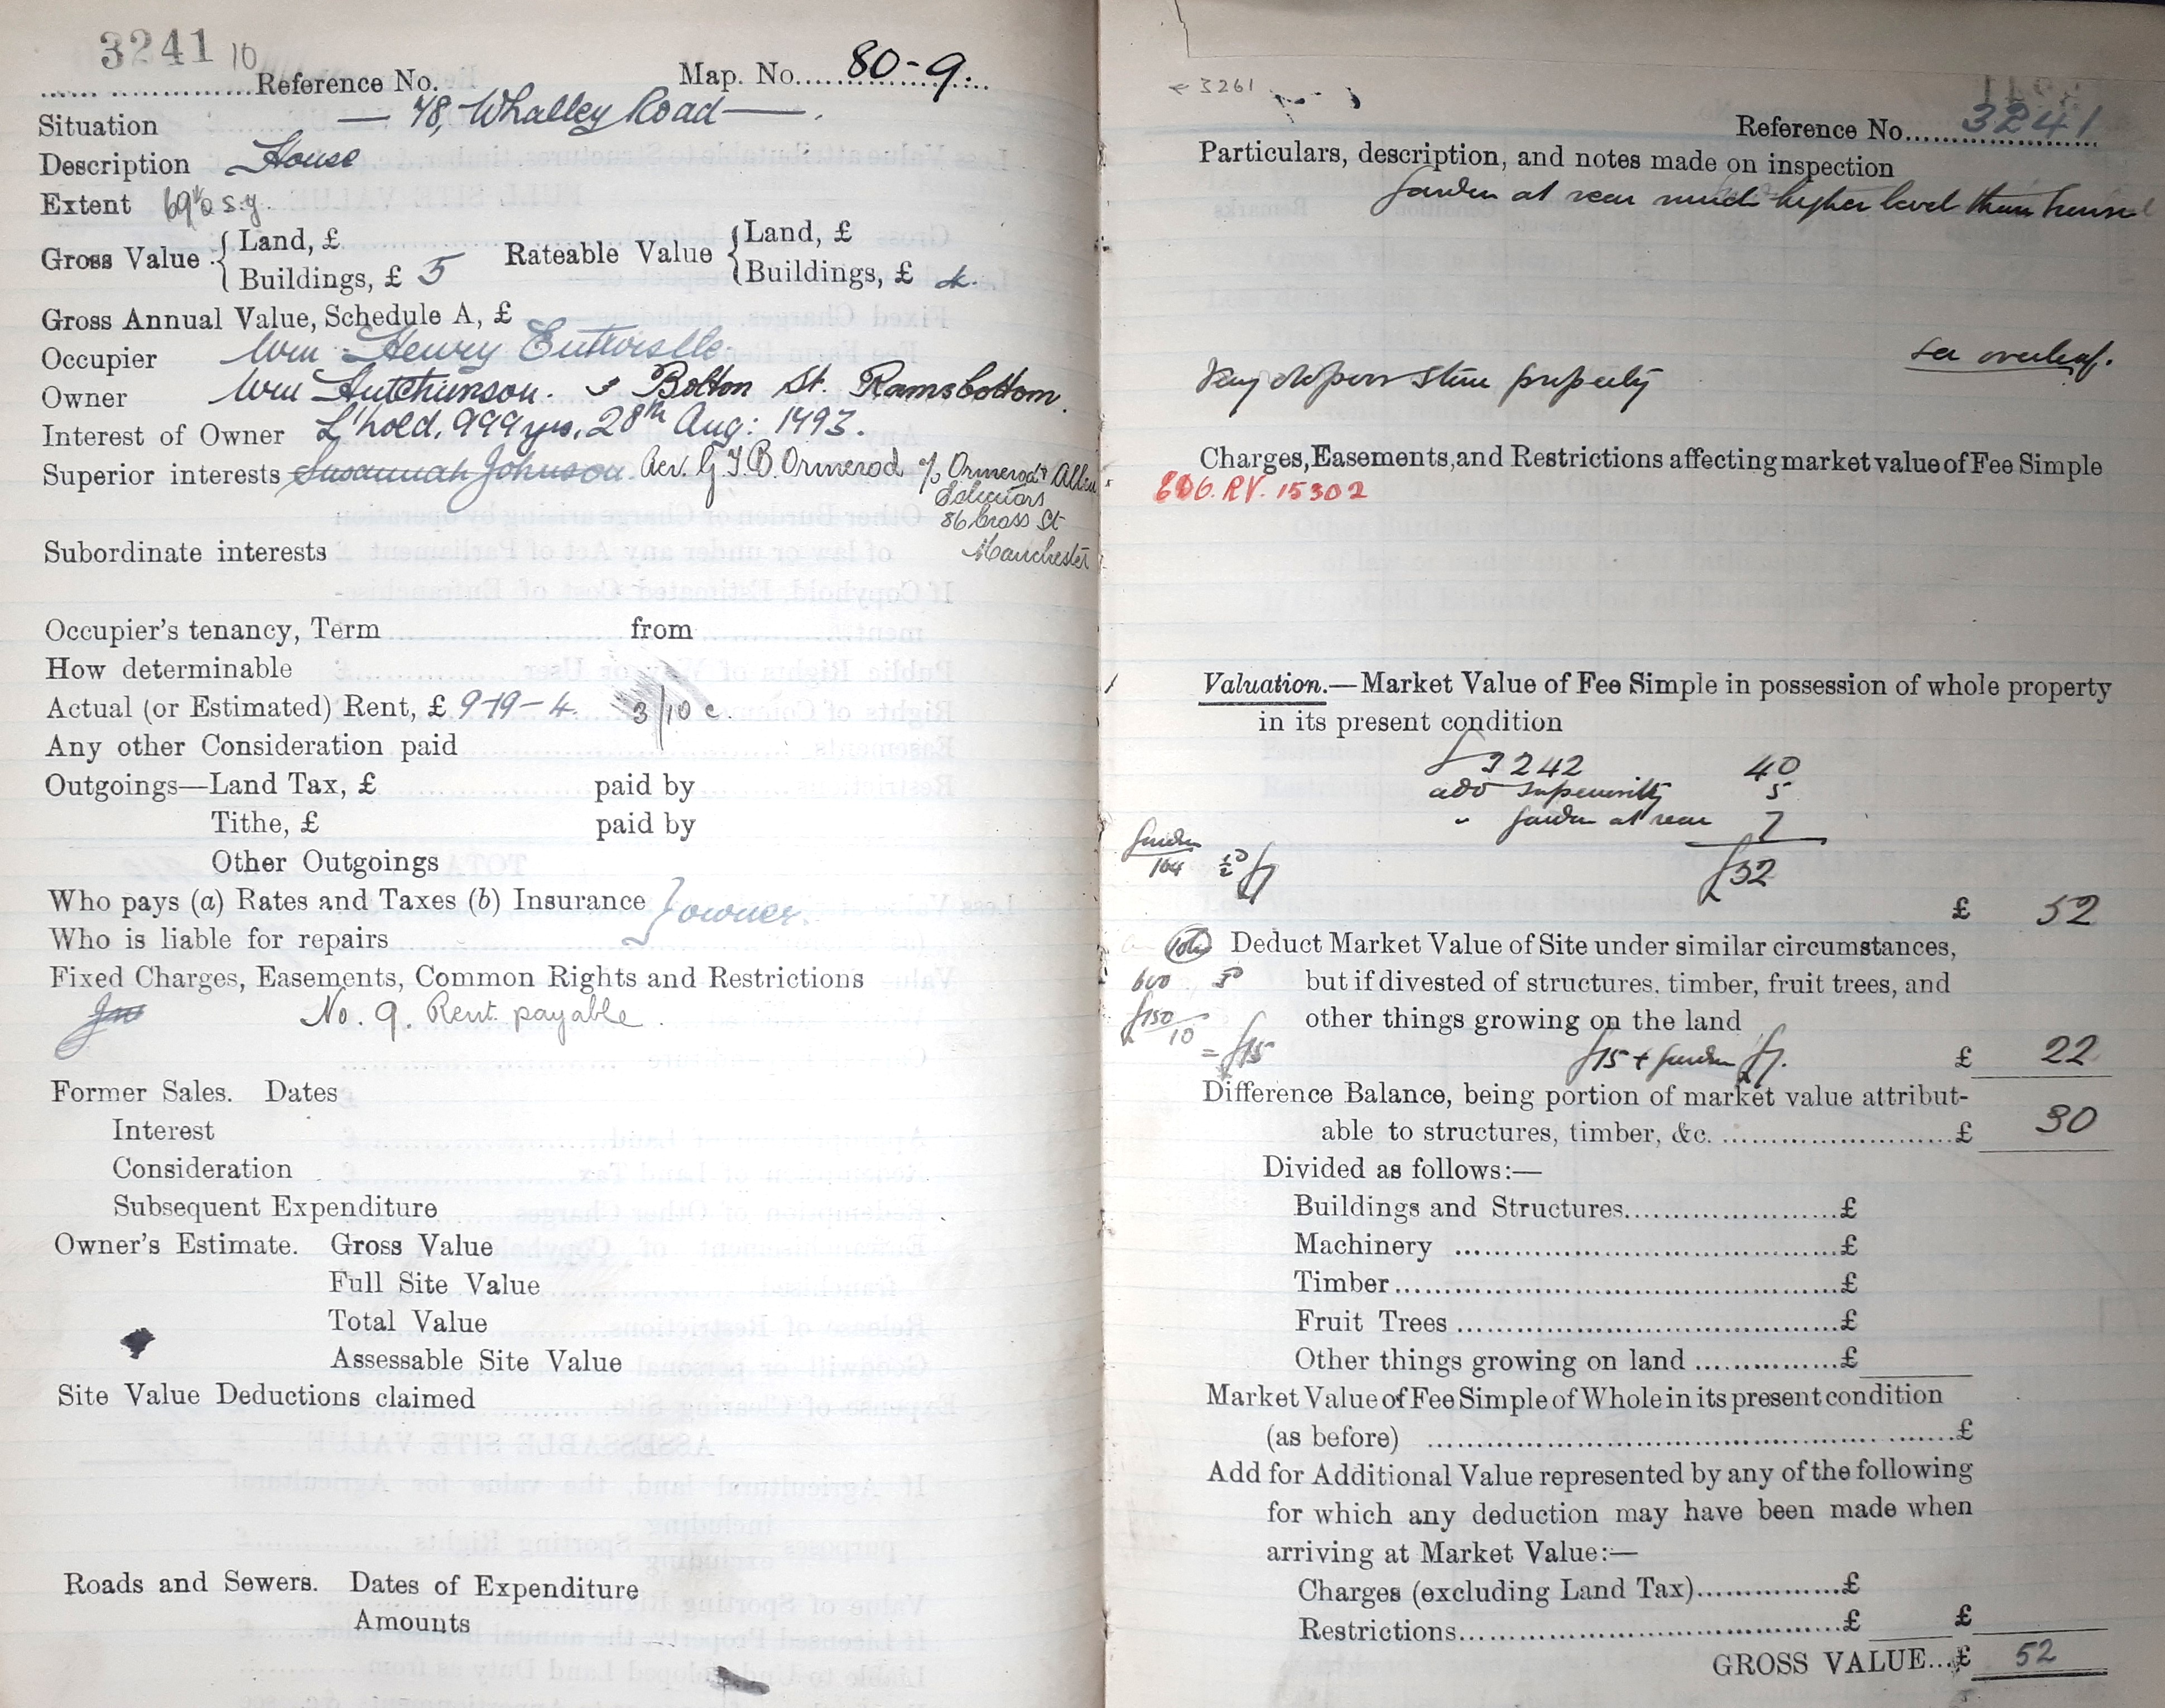 3241 10
Reference No. Map. No. 80-9.
Situation — 48, Whalley Road —
Description House
Extent 69½ s.y.
Gross Value { Land, £ Rateable Value { Land, £
Buildings, £ 5 Buildings, £ 4.
Gross Annual Value, Schedule A, £
Occupier Wm Henry Entwistle.
Owner Wm Hutchinson. Bolton St. Ramsbottom.
Interest of Owner L'hold, 999 yrs, 28th Aug: 1793.
Superior interests Susannah Johnson. Rev. G T. B. Ormerod c/o Ormerod & Allen
Solicitors
86 Cross St
Manchester
Subordinate interests
Occupier's tenancy, Term from
How determinable
Actual (or Estimated) Rent, £ 9-19-4. 3/10 c.
Any other Consideration paid
Outgoings—Land Tax, £ paid by
Tithe, £ paid by
Other Outgoings
Who pays (a) Rates and Taxes (b) Insurance } owner.
Who is liable for repairs
Fixed Charges, Easements, Common Rights and Restrictions
No. 9. Rent payable.
Former Sales. Dates
Interest
Consideration
Subsequent Expenditure
Owner's Estimate. Gross Value
Full Site Value
Total Value
Assessable Site Value
Site Value Deductions claimed
Roads and Sewers. Dates of Expenditure
Amounts
3261
Reference No. 3241
Particulars, description, and notes made on inspection
Garden at rear much higher level than house
see overleaf.
Very stone property
Charges, Easements, and Restrictions affecting market value of Fee Simple
RV. 15302
Valuation.—Market Value of Fee Simple in possession of whole property
in its present condition
3242 40
add superiority 5
" garden at rear 7
garden
164 £7 £52
£ 52
Deduct Market Value of Site under similar circumstances,
600 but if divested of structures. timber, fruit trees, and
£150/10 other things growing on the land
= £15 £15 + garden £7. £ 22
Difference Balance, being portion of market value attribut-
able to structures, timber, &c. £ 30
Divided as follows:—
Buildings and Structures £
Machinery £
Timber £
Fruit Trees £
Other things growing on land £
Market Value of Fee Simple of Whole in its present condition
(as before) £
Add for Additional Value represented by any of the following
for which any deduction may have been made when
arriving at Market Value:—
Charges (excluding Land Tax) £
Restrictions £ £
GROSS VALUE...£ 52